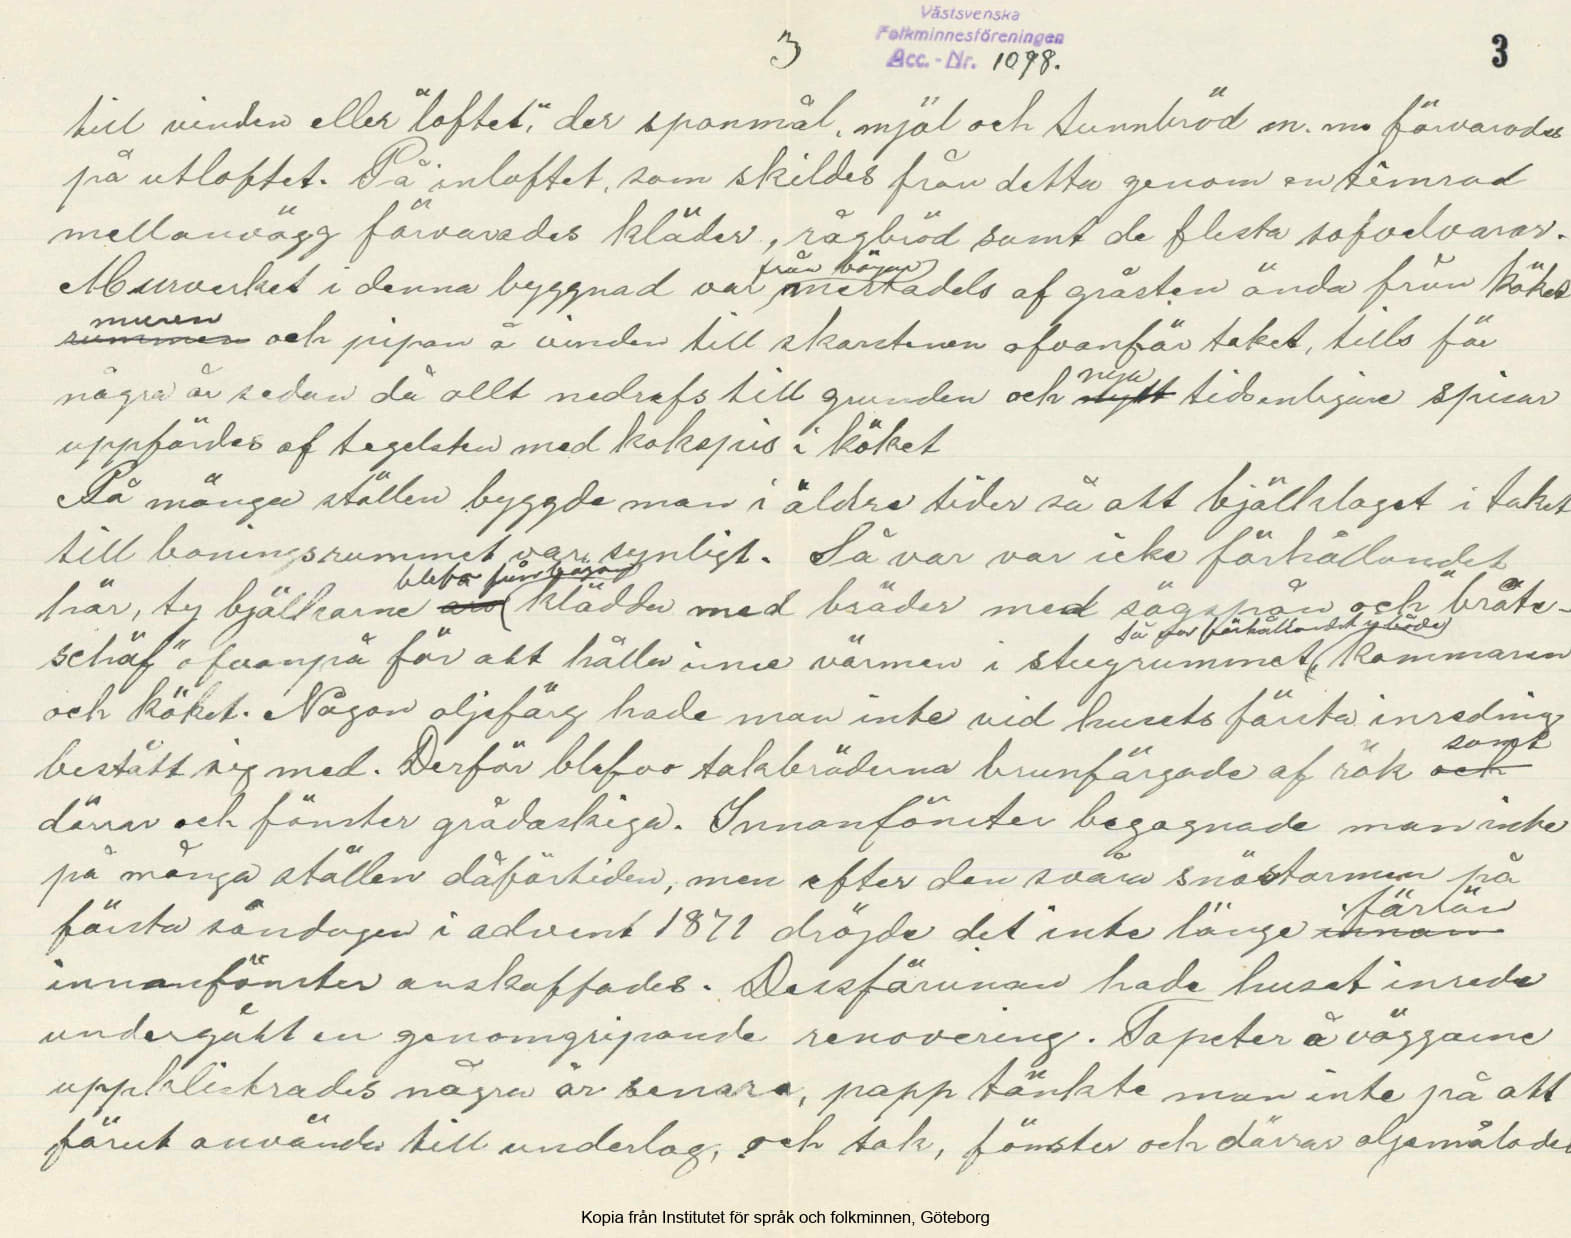 Västsvenska
Folkminnesföreningen
Acc.-Nr. 1098.
3
3
till vinden eller "loftet", der spanmål, mjöl och tunnbröd m. m. förvarades
på utloftet. På inloftet, som skildes från detta genom en timrad
mellanvägg förvarades kläder, rågbröd samt de flesta sofvelvaror.
från början
Murverket i denna byggnad var mestadels af gråsten ända från köks
muren
rummen och pipan å vinden till skorstenen ofvanför taket, tills för
nya
några år sedan då allt nedrefs till grunden och nytt tidsenligare spisar
uppfördes af tegelsten med kokspis i köket
På många ställen byggde man i äldre tider så att bjälklaget i taket
till boningsrummet var synligt. Så var var icke förhållandet
blefvo från början
här, ty bjälkarne klädda med bräder med sågspån och "bråte-
så var förhållandet i både
schäf" ofvanpå för att hålla inne värmen i stugrummet, kammaren
och köket. Någon oljefärg hade man inte vid husets första inredning
samt
bestått sig med. Derför blefvo takbräderna brunfärgade af rök och
dörrar och fönster grådaskiga. Innanfönster begagnade man inte
på många ställen dåförtiden, men efter den svåra snöstormen på
förrän
första söndagen i advent 1871 dröjde det inte länge innan
innanfönster anskaffades. Dessförinnan hade huset inrede
undergått en genomgripande renovering. Tapeter å väggarne
uppklistrades några år senare, papp tänkte man inte på att
förut använda till underlag, och tak, fönster och dörrar oljemålades
Kopia från Institutet för språk och folkminnen, Göteborg